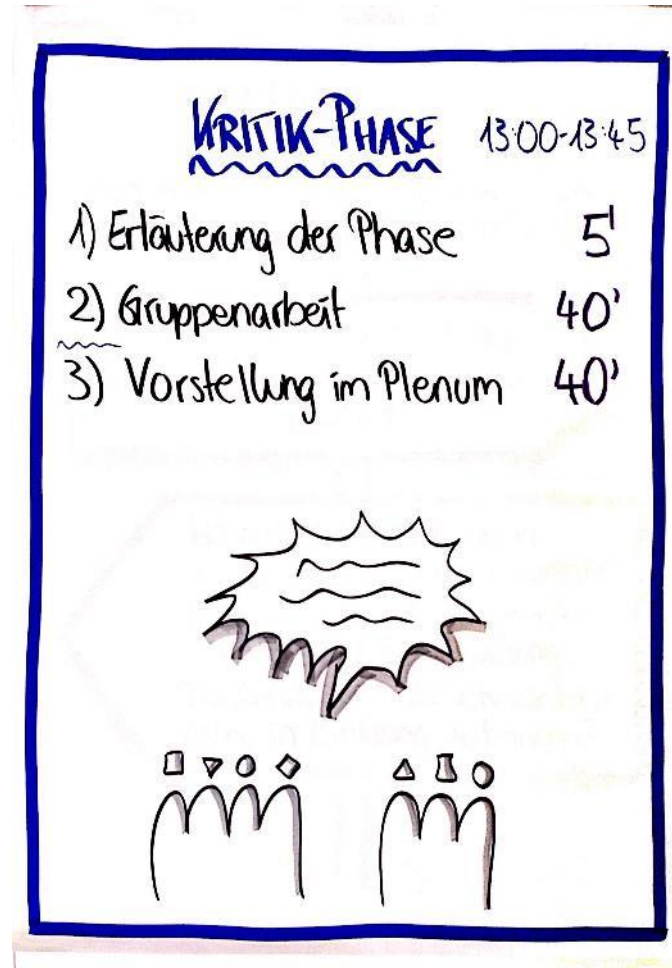 KRITIK-PHASE 13:00-13:45
1) Erläuterung der Phase 5'
2) Gruppenarbeit 40'
3) Vorstellung im Plenum 40'